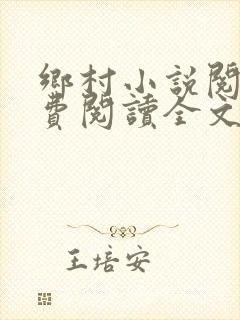 鄉村小說閱
費閱讀全文
王培安